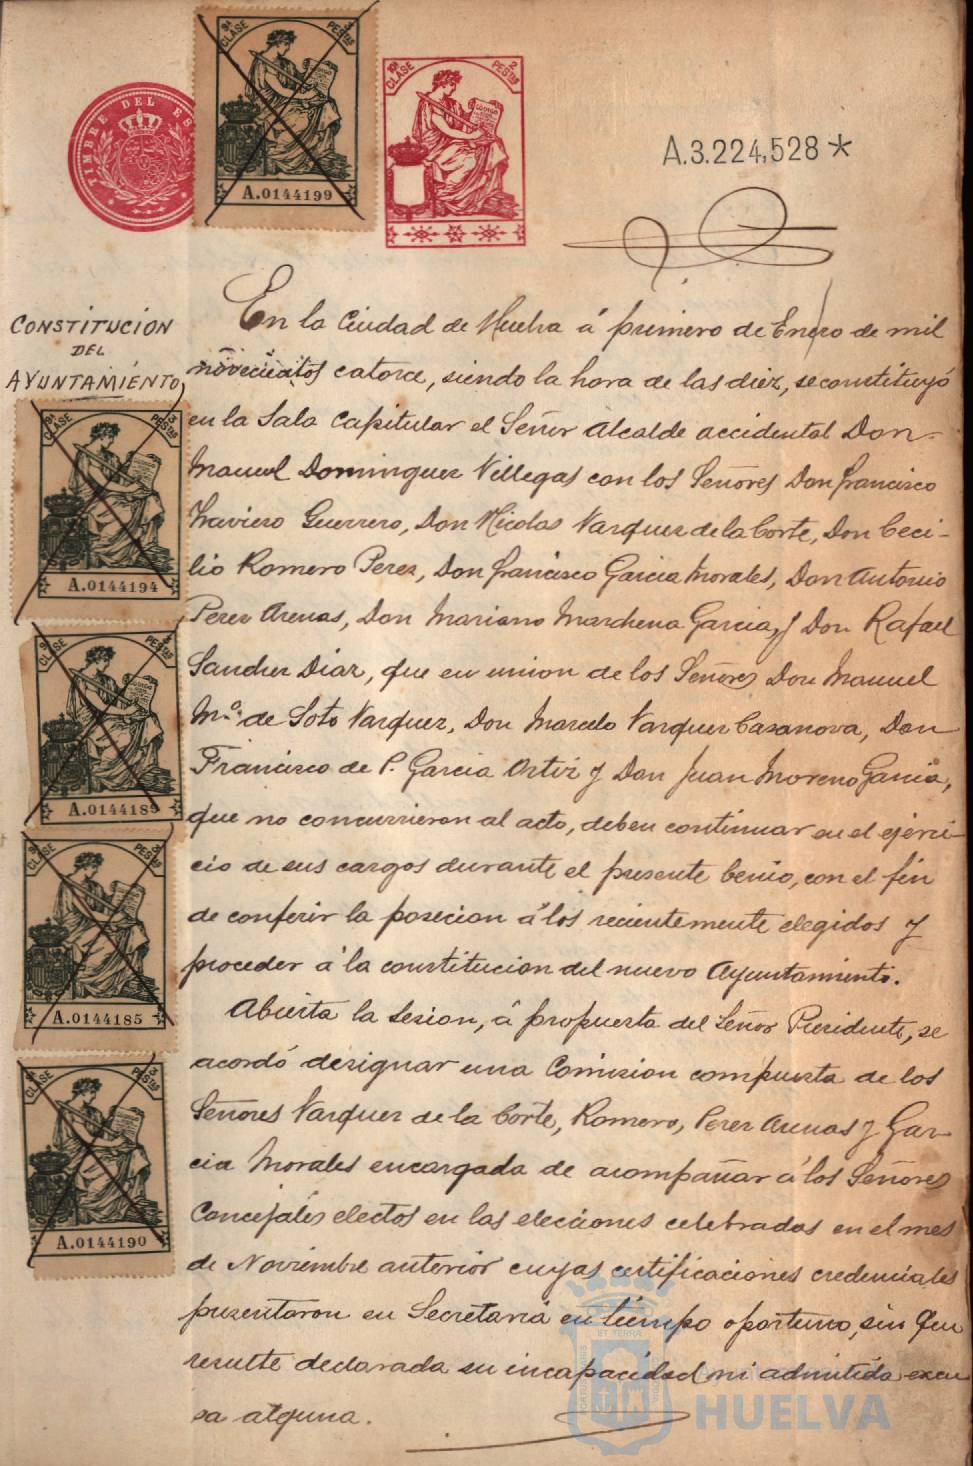 TIMBRE DEL ES
9ª CLASE 3 PESTAS
A.0144199
10ª CLASE 2 PESTAS
A.3.224,528 *
CONSTITUCION
DEL
AYUNTAMIENTO,
9ª CLASE 3 PESTAS
A.0144194
9ª CLASE 3 PESTAS
A.0144189
9ª CLASE 3 PESTAS
A.0144185
9ª CLASE 3 PESTAS
A.0144190
En la Ciudad de Huelva á primero de Enero de mil
novecientos catorce, siendo la hora de las diez, se constituyó
en la Sala Capitular el Señor Alcalde accidental Don
Manuel Dominguez Villegas con los Señores Don Francisco
Traviero Guerrero, Don Nicolas Vazquez de la Corte, Don Ceci-
lio Romero Perez, Don Francisco Garcia Morales, Don Antonio
Perez Arenas, Don Mariano Marchena Garcia y Don Rafael
Sanchez Diaz, que en union de los Señores Don Manuel
Mª. de Soto Vazquez, Don Marcelo Vazquez Casanova, Don
Francisco de P. Garcia Ortiz y Don Juan Moreno Garcia,
que no concurrieron al acto, deben continuar en el ejerci-
cio de sus cargos durante el presente benio, con el fin
de conferir la posecion á los recientemente elegidos y
proceder á la constitucion del nuevo Ayuntamiento.
Abierta la sesion, á propuesta del Señor Presidente, se
acordó designar una Comision compuesta de los
Señores Vazquez de la Corte, Romero, Perez Arenas y Gar-
cia Morales encargada de acompañar á los Señores
Concejales electos en las elecciones celebradas en el mes
de Noviembre anterior cuyas certificaciones credenciales
presentaron en Secretaria en tiempo oportuno, sin que
resulte declarada su incapacidad ni admitida excu
sa alguna.
HUELVA